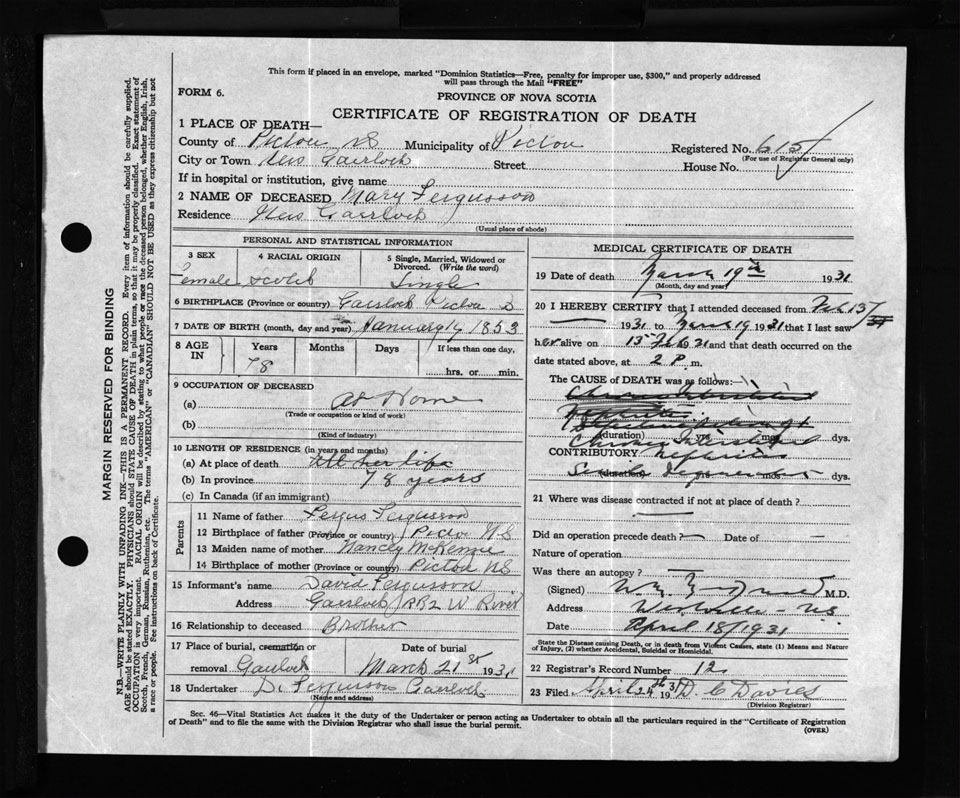 This form if placed in an envelope, marked "Dominion Statistics—Free, penalty for improper use, $300," and properly addressed
will pass through the Mail "FREE"
FORM 6.
PROVINCE OF NOVA SCOTIA
CERTIFICATE OF REGISTRATION OF DEATH
1 PLACE OF DEATH—
County of Pictou NS Municipality of Pictou Registered No. 615
(For use of Registrar General only)
City or Town New Gairloch Street House No.
If in hospital or institution, give name
2 NAME OF DECEASED Mary Fergusson
Residence New Gairloch
(Usual place of abode)
PERSONAL AND STATISTICAL INFORMATION
3 SEX 4 RACIAL ORIGIN 5 Single, Married, Widowed or Divorced. (Write the word)
Female Scotch Single
6 BIRTHPLACE (Province or country) Gairloch Pictou
7 DATE OF BIRTH (month, day and year) January 14 1853
8 AGE IN Years Months Days If less than one day,
78 hrs. or min.
9 OCCUPATION OF DECEASED
(a) At Home
(Trade or occupation or kind of work)
(b)
(Kind of industry)
10 LENGTH OF RESIDENCE (in years and months)
(a) At place of death all her life
(b) In province 78 years
(c) In Canada (if an immigrant)
Parents
11 Name of father Fergus Fergusson
12 Birthplace of father (Province or country) Pictou NS
13 Maiden name of mother Nancy McKenzie
14 Birthplace of mother (Province or country) Pictou NS
15 Informant's name David Fergusson
Address Gairloch RR2 W River
16 Relationship to deceased Brother
17 Place of burial, cremation or removal Gairloch Date of burial March 21st 1931
18 Undertaker D. Fergusson Gairloch
(Name and address)
MEDICAL CERTIFICATE OF DEATH
19 Date of death March 19th 1931
(Month, day and year)
20 I HEREBY CERTIFY that I attended deceased from Feb 13/31
— 1931 to March 19 1931 that I last saw
her alive on 13 Feb 31 and that death occurred on the
date stated above, at 2 P. m.
The CAUSE of DEATH was as follows:
Chronic Interstitial
Nephritis
(duration) yrs. mos. dys.
Chronic Interstitial
CONTRIBUTORY Nephritis
Senile Degeneration
(duration) yrs. mos. dys.
21 Where was disease contracted if not at place of death?
—
Did an operation precede death? — Date of —
Nature of operation
Was there an autopsy? —
(Signed) M.D.
Address Westville - NS
Date April 18/1931
State the Disease causing Death, or in Death from Violent Causes, state (1) Means and Nature
of Injury, (2) whether Accidental, Suicidal or Homicidal.
22 Registrar's Record Number 12
23 Filed April 24th 1931 D. C Davies
(Division Registrar)
Sec. 46—Vital Statistics Act makes it the duty of the Undertaker or person acting as Undertaker to obtain all the particulars required in the "Certificate of Registration
of Death" and to file the same with the Division Registrar who shall issue the burial permit.
(OVER)
MARGIN RESERVED FOR BINDING
N.B.—WRITE PLAINLY WITH UNFADING INK—THIS IS A PERMANENT RECORD. Every item of information should be carefully supplied.
AGE should be stated EXACTLY. PHYSICIANS should STATE CAUSE OF DEATH in plain terms, so that it may be properly classified. Exact statement of
OCCUPATION is very important. RACIAL ORIGIN will be described by stating to what people or race the deceased person belonged, whether English, Irish,
Scotch, French, German, Russian, Ruthenian, etc. The terms "AMERICAN" or "CANADIAN" SHOULD NOT BE USED as they express citizenship but not
a race or people. See instructions on back of Certificate.